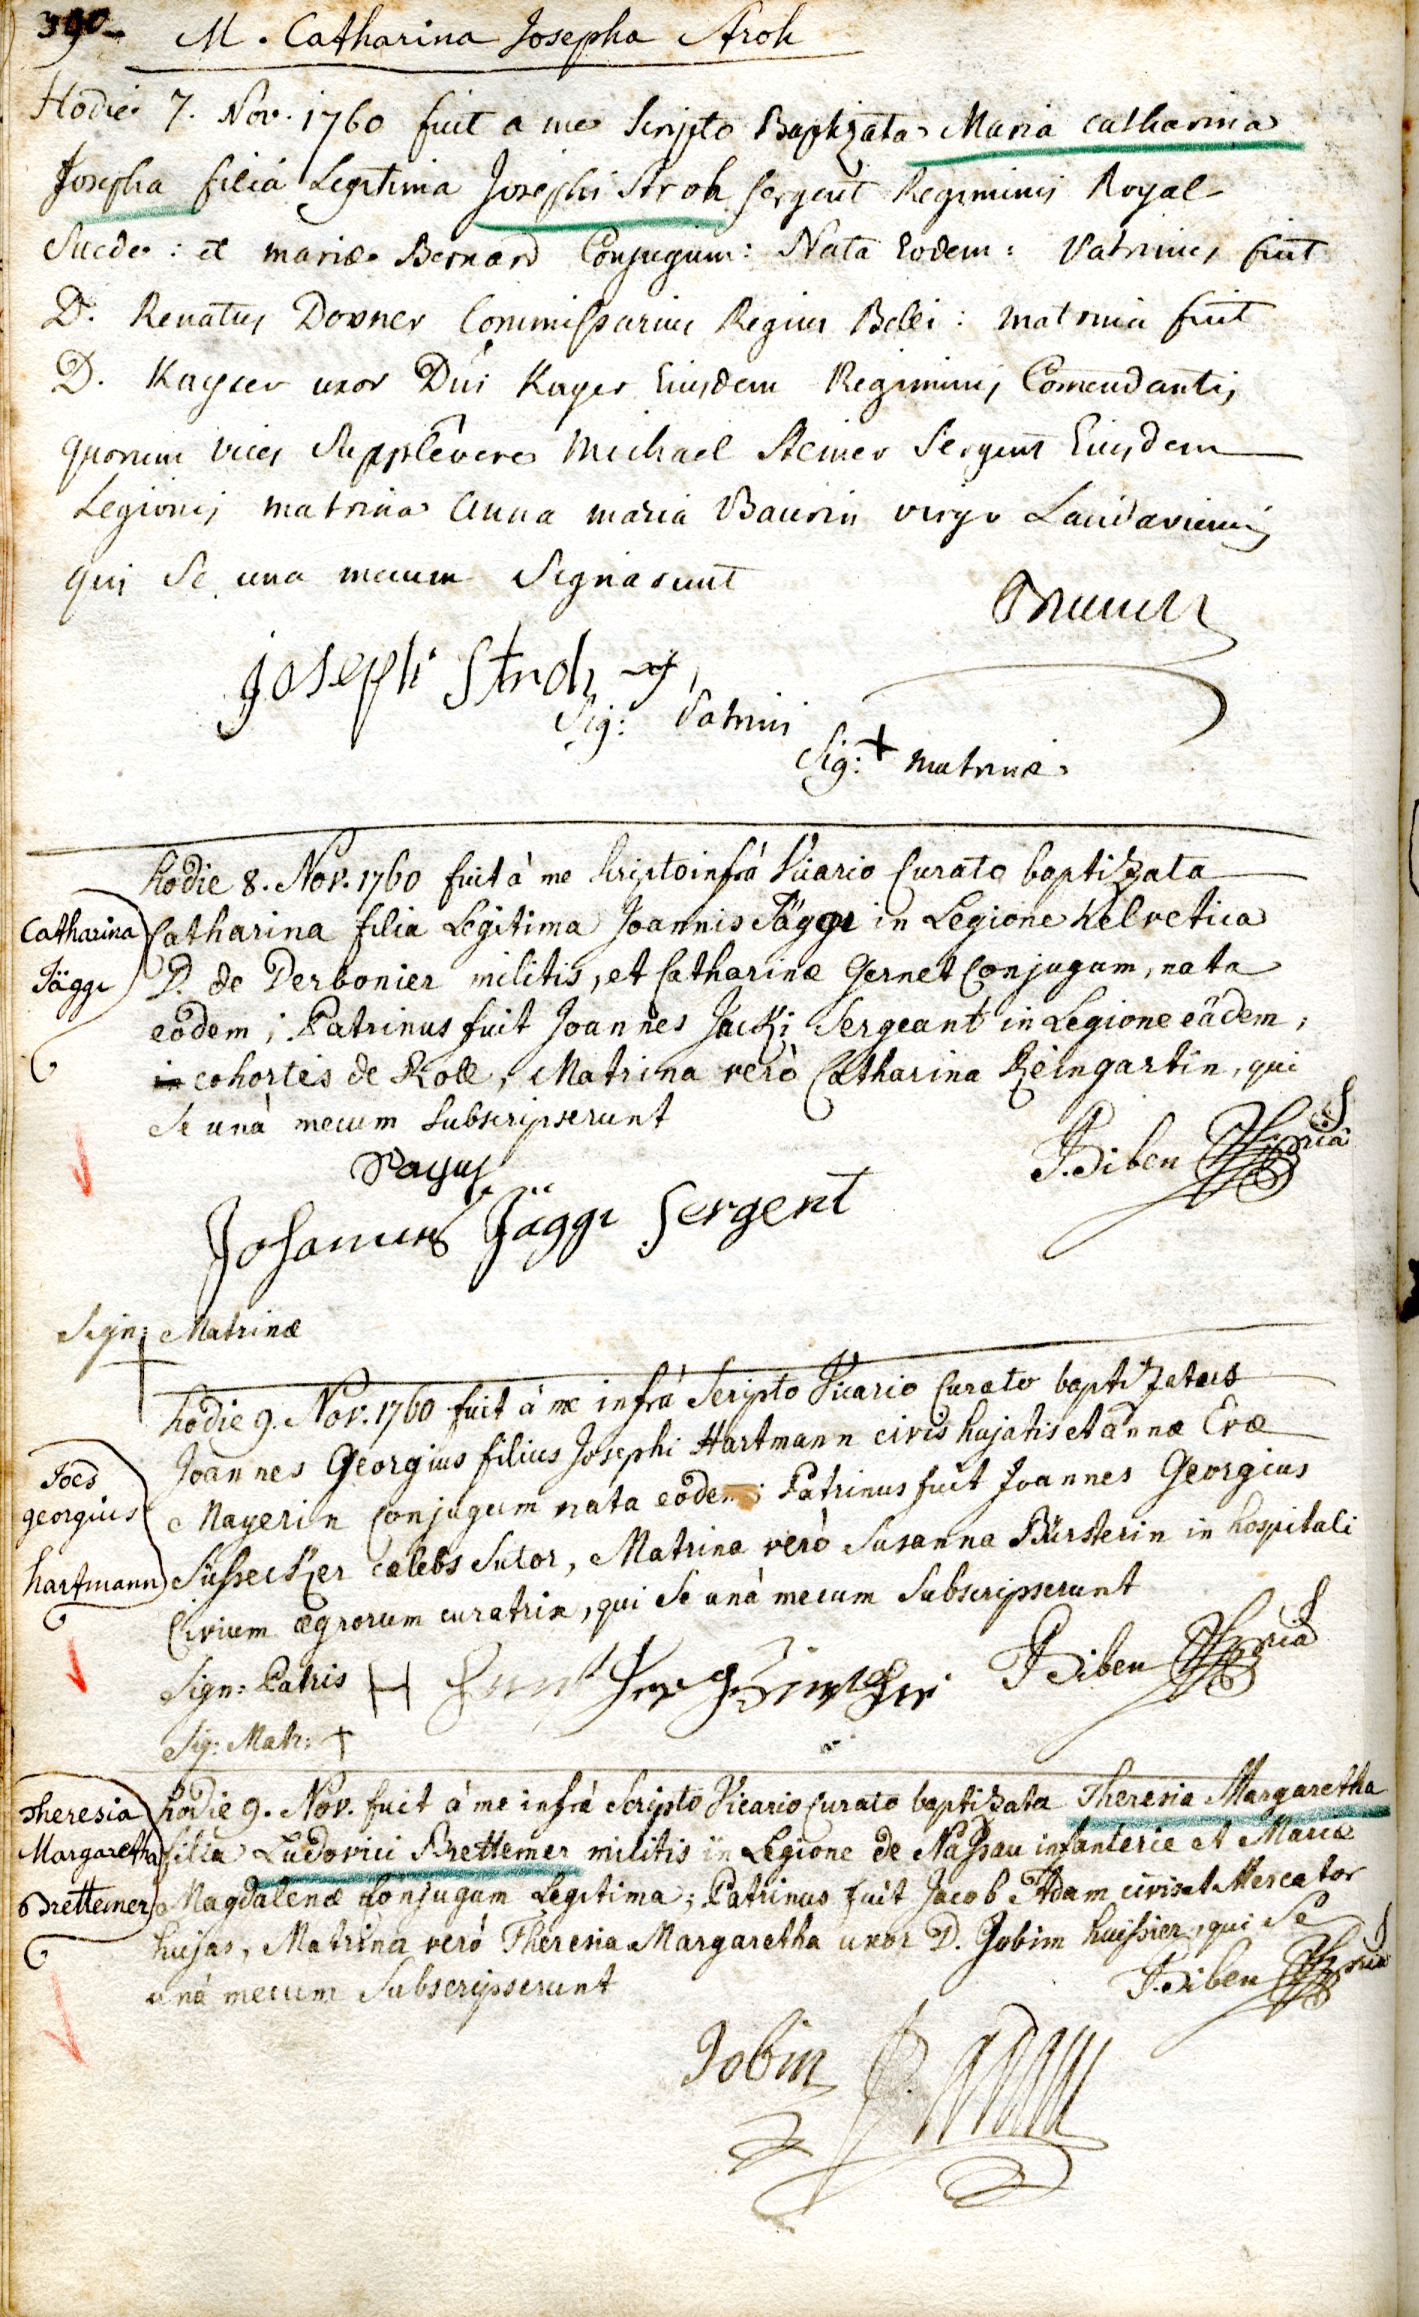 390
M. Catharina Josepha Stroh
Hodie 7. Nov. 1760 fuit a me Scripto Baptizata Maria Catharina
Josepha filia Legitima Josephi Stroh Sergent Regiminis Royal
Suede: et mariæ Bernard Conjugum: Nata Eodem: Patrinus fuit
D. Renatus Dovner Commissarius Regius Belli: matrina fuit
D. Kayser uxor Dni Kayser Eiusdem Regiminis Comendantis
quorum vices Supplevere Michael Steiner Sergent Eiusdem
Legionis matrina Anna maria Baurin virgo Landaviensis
qui Se una mecum Signarunt
Joseph Stroh
Sig: Patrini
Sig: + matrinæ
hodie 8. Nov. 1760 fuit à me Scripto infrà Vicario Curato baptizata
Catharina
Jäggi
Catharina filia Legitima Joannis Jäggi in Legione helvetica
D. de Derbonier militis, et Catharinæ Gernet Conjugum, nata
eodem; Patrinus fuit Joannes Jacki Sergeant in Legione eâdem,
in cohortis de Roll, Matrina verò Catharina Reingartin, qui
Se unà mecum Subscripserunt
F. Biben
Johannes Jäggi Sergent
Sign: Matrinæ
+
hodie 9. Nov. 1760 fuit à me infrà Scripto Vicario Curato baptizatus
Joes
georgius
hartmann
Joannes Georgius filius Josephi Hartmann civis hujatis et annæ Evæ
Mayerin Conjugum nata eodem; Patrinus fuit Joannes Georgius
Süssecker cælebs Sutor, Matrina verò Susanna Bürsterin in hospitali
Civium ægrorum curatrix, qui Se unà mecum Subscripserunt
Sign: Patris H
F. Biben
Sig: Matr: +
Theresia
Margaretha
Brettemer
hodie 9. Nov. fuit à me infrà Scripto Vicario Curato baptizata Theresia Margaretha
filia Ludovici Brettemer militis in Legione de Nassau infanterie et Mariæ
Magdalenæ Conjugum Legitima; Patrinus fuit Jacob Adam civis et Mercator
hujas, Matrina verò Theresia Margaretha uxor D. Jobin huissier, qui Se
unà mecum Subscripserunt
F. Biben
Jobin